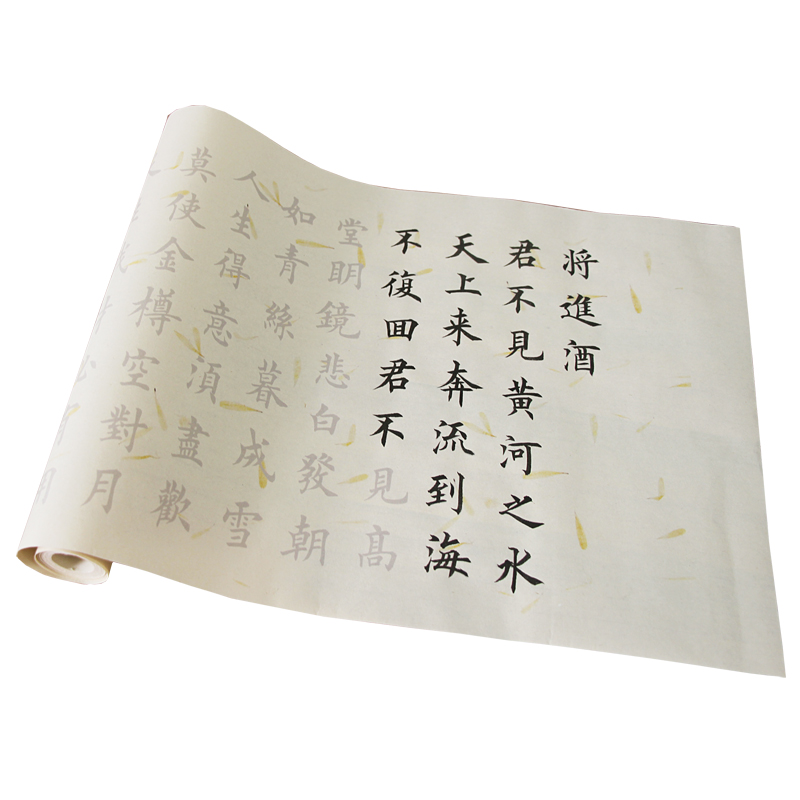 将進酒
君不見黄河之水
天上来奔流到海
不復囬君不見髙
堂眀鏡悲白發朝
如青絲暮成雪
人生得意湏盡歡
莫使金樽空對月